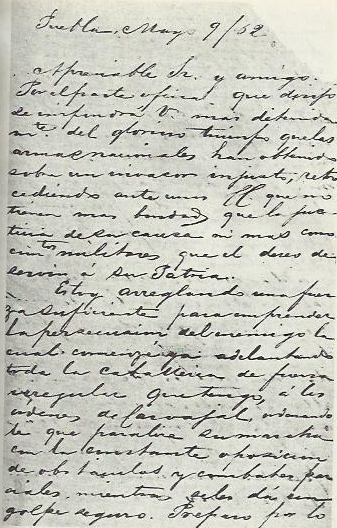 Puebla, Mayo 9/62.
Apreciable Sr. y amigo.
Por el parte oficial que
se impondrá V. mas detenida
mte. del glorioso triunfo que las
armas nacionales han obtenido
sobre un invasor injusto, retro
cediendo ante unos que no
tienen mas bondad que la jus
ticia de su causa ni mas cono
cimtos. militares que el deseo de
servir á su Patria.
Estoy arreglando una fuer
za suficiente para emprender
la persecucion del enemigo la
cual comenzé ya adelantando
toda la caballeria de fuerza
irregular que tengo, á las
órdenes de Carvajal, ordenando
le que paralize su marcha
con la constante oposicion
de obstaculos y combates par
ciales, mientras se les dá un
golpe seguro. Preparo por lo